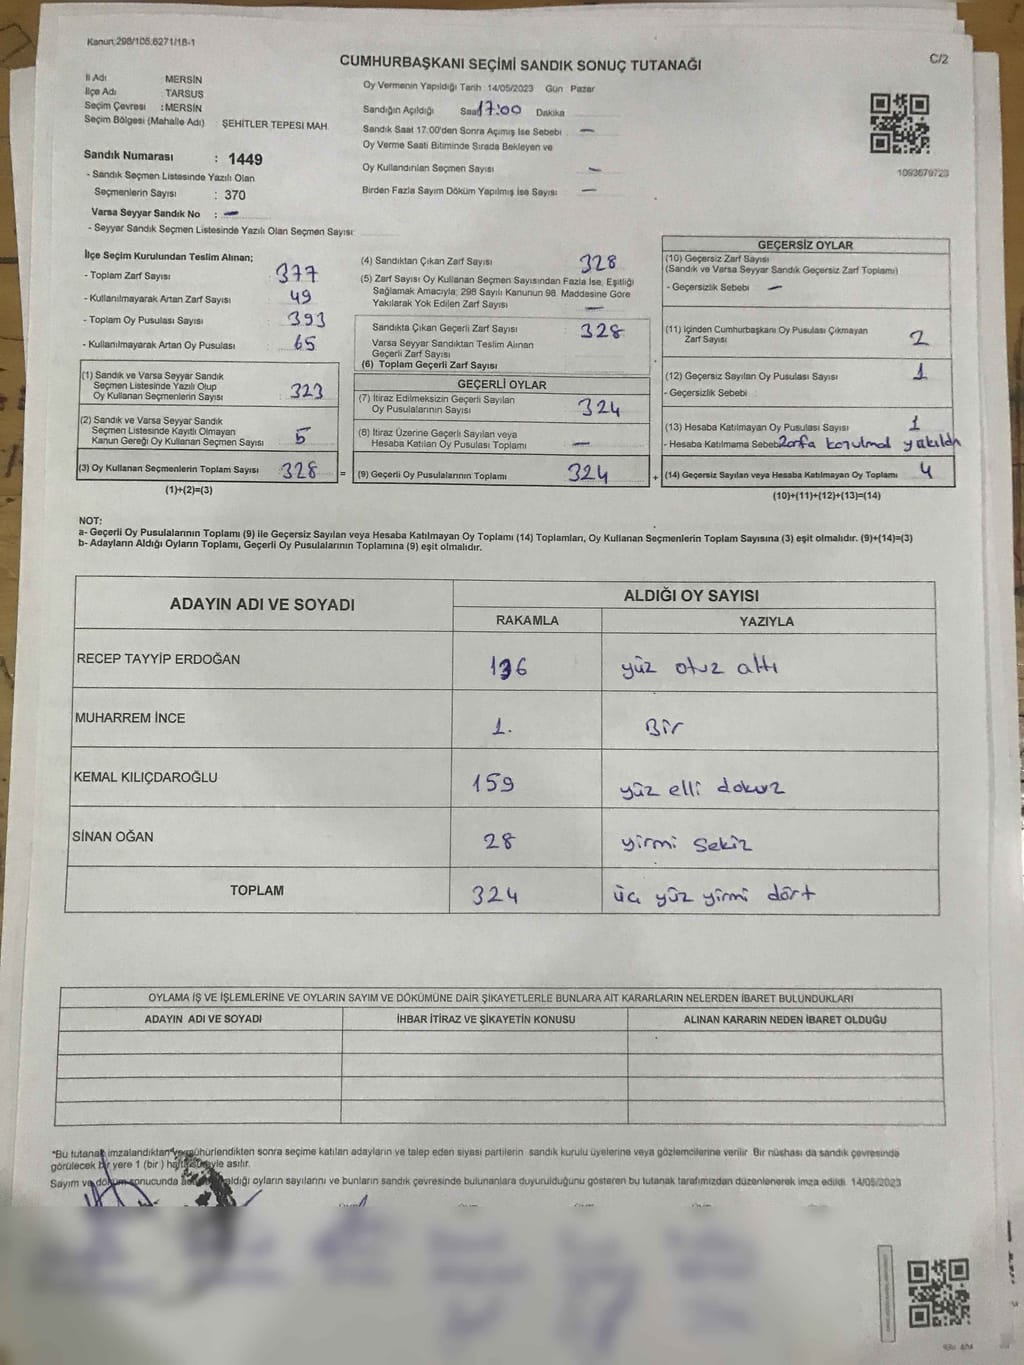 Kanun:298/105;6271/18-1
C/2
CUMHURBAŞKANI SEÇİMİ SANDIK SONUÇ TUTANAĞI
İl Adı MERSİN
İlçe Adı TARSUS
Seçim Çevresi :MERSİN
Seçim Bölgesi (Mahalle Adı) ŞEHİTLER TEPESİ MAH.
Sandık Numarası : 1449
- Sandık Seçmen Listesinde Yazılı Olan
Seçmenlerin Sayısı : 370
Varsa Seyyar Sandık No : —
- Seyyar Sandık Seçmen Listesinde Yazılı Olan Seçmen Sayısı:
Oy Vermenin Yapıldığı Tarih :14/05/2023 Gün Pazar
Sandığın Açıldığı Saat 17:00 Dakika
Sandık Saat 17:00'den Sonra Açımış İse Sebebi —
Oy Verme Saati Bitiminde Sırada Bekleyen ve
Oy Kullandırılan Seçmen Sayısı —
Birden Fazla Sayım Döküm Yapılmış İse Sayısı: —
1093679723
İlçe Seçim Kurulundan Teslim Alınan;
- Toplam Zarf Sayısı 377
- Kullanılmayarak Artan Zarf Sayısı 49
- Toplam Oy Pusulası Sayısı 393
- Kullanılmayarak Artan Oy Pusulası 65
(1) Sandık ve Varsa Seyyar Sandık
Seçmen Listesinde Yazılı Olup
Oy Kullanan Seçmenlerin Sayısı 323
(2) Sandık ve Varsa Seyyar Sandık
Seçmen Listesinde Kayıtlı Olmayan
Kanun Gereği Oy Kullanan Seçmen Sayısı 5
(3) Oy Kullanan Seçmenlerin Toplam Sayısı 328 =
(1)+(2)=(3)
(4) Sandıktan Çıkan Zarf Sayısı 328
(5) Zarf Sayısı Oy Kullanan Seçmen Sayısından Fazla İse, Eşitliği
Sağlamak Amacıyla; 298 Sayılı Kanunun 98. Maddesine Göre
Yakılarak Yok Edilen Zarf Sayısı —
Sandıkta Çıkan Geçerli Zarf Sayısı 328
Varsa Seyyar Sandıktan Teslim Alınan
Geçerli Zarf Sayısı
(6) Toplam Geçerli Zarf Sayısı
GEÇERLİ OYLAR
(7) İtiraz Edilmeksizin Geçerli Sayılan
Oy Pusulalarının Sayısı 324
(8) İtiraz Üzerine Geçerli Sayılan veya
Hesaba Katılan Oy Pusulası Toplamı —
(9) Geçerli Oy Pusulalarının Toplamı 324 +
GEÇERSİZ OYLAR
(10) Geçersiz Zarf Sayısı
(Sandık ve Varsa Seyyar Sandık Geçersiz Zarf Toplamı)
- Geçersizlik Sebebi —
(11) İçinden Cumhurbaşkanı Oy Pusulası Çıkmayan
Zarf Sayısı 2
(12) Geçersiz Sayılan Oy Pusulası Sayısı 1
- Geçersizlik Sebebi :
(13) Hesaba Katılmayan Oy Pusulası Sayısı 1
- Hesaba Katılmama Sebebi Zarfa yakıldı
(14) Geçersiz Sayılan veya Hesaba Katılmayan Oy Toplamı 4
(10)+(11)+(12)+(13)=(14)
NOT:
a- Geçerli Oy Pusulalarının Toplamı (9) ile Geçersiz Sayılan veya Hesaba Katılmayan Oy Toplamı (14) Toplamları, Oy Kullanan Seçmenlerin Toplam Sayısına (3) eşit olmalıdır. (9)+(14)=(3)
b- Adayların Aldığı Oyların Toplamı, Geçerli Oy Pusulalarının Toplamına (9) eşit olmalıdır.
ADAYIN ADI VE SOYADI ALDIĞI OY SAYISI
RAKAMLA YAZIYLA
RECEP TAYYİP ERDOĞAN 136 yüz otuz altı
MUHARREM İNCE 1. Bir
KEMAL KILIÇDAROĞLU 159 yüz elli dokuz
SİNAN OĞAN 28 yirmi sekiz
TOPLAM 324 üç yüz yirmi dört
OYLAMA İŞ VE İŞLEMLERİNE VE OYLARIN SAYIM VE DÖKÜMÜNE DAİR ŞİKAYETLERLE BUNLARA AİT KARARLARIN NELERDEN İBARET BULUNDUKLARI
ADAYIN ADI VE SOYADI İHBAR İTİRAZ VE ŞİKAYETİN KONUSU ALINAN KARARIN NEDEN İBARET OLDUĞU
*Bu tutanak imzalandıktan ve mühürlendikten sonra seçime katılan adayların ve talep eden siyasi partilerin sandık kurulu üyelerine veya gözlemcilerine verilir Bir nüshası da sandık çevresinde
görülecek bir yere 1 (bir ) hafta süreyle asılır.
Sayım ve döküm sonucunda aldığı oyların sayılarını ve bunların sandık çevresinde bulunanlara duyurulduğunu gösteren bu tutanak tarafımızdan düzenlenerek imza edildi. 14/05/2023